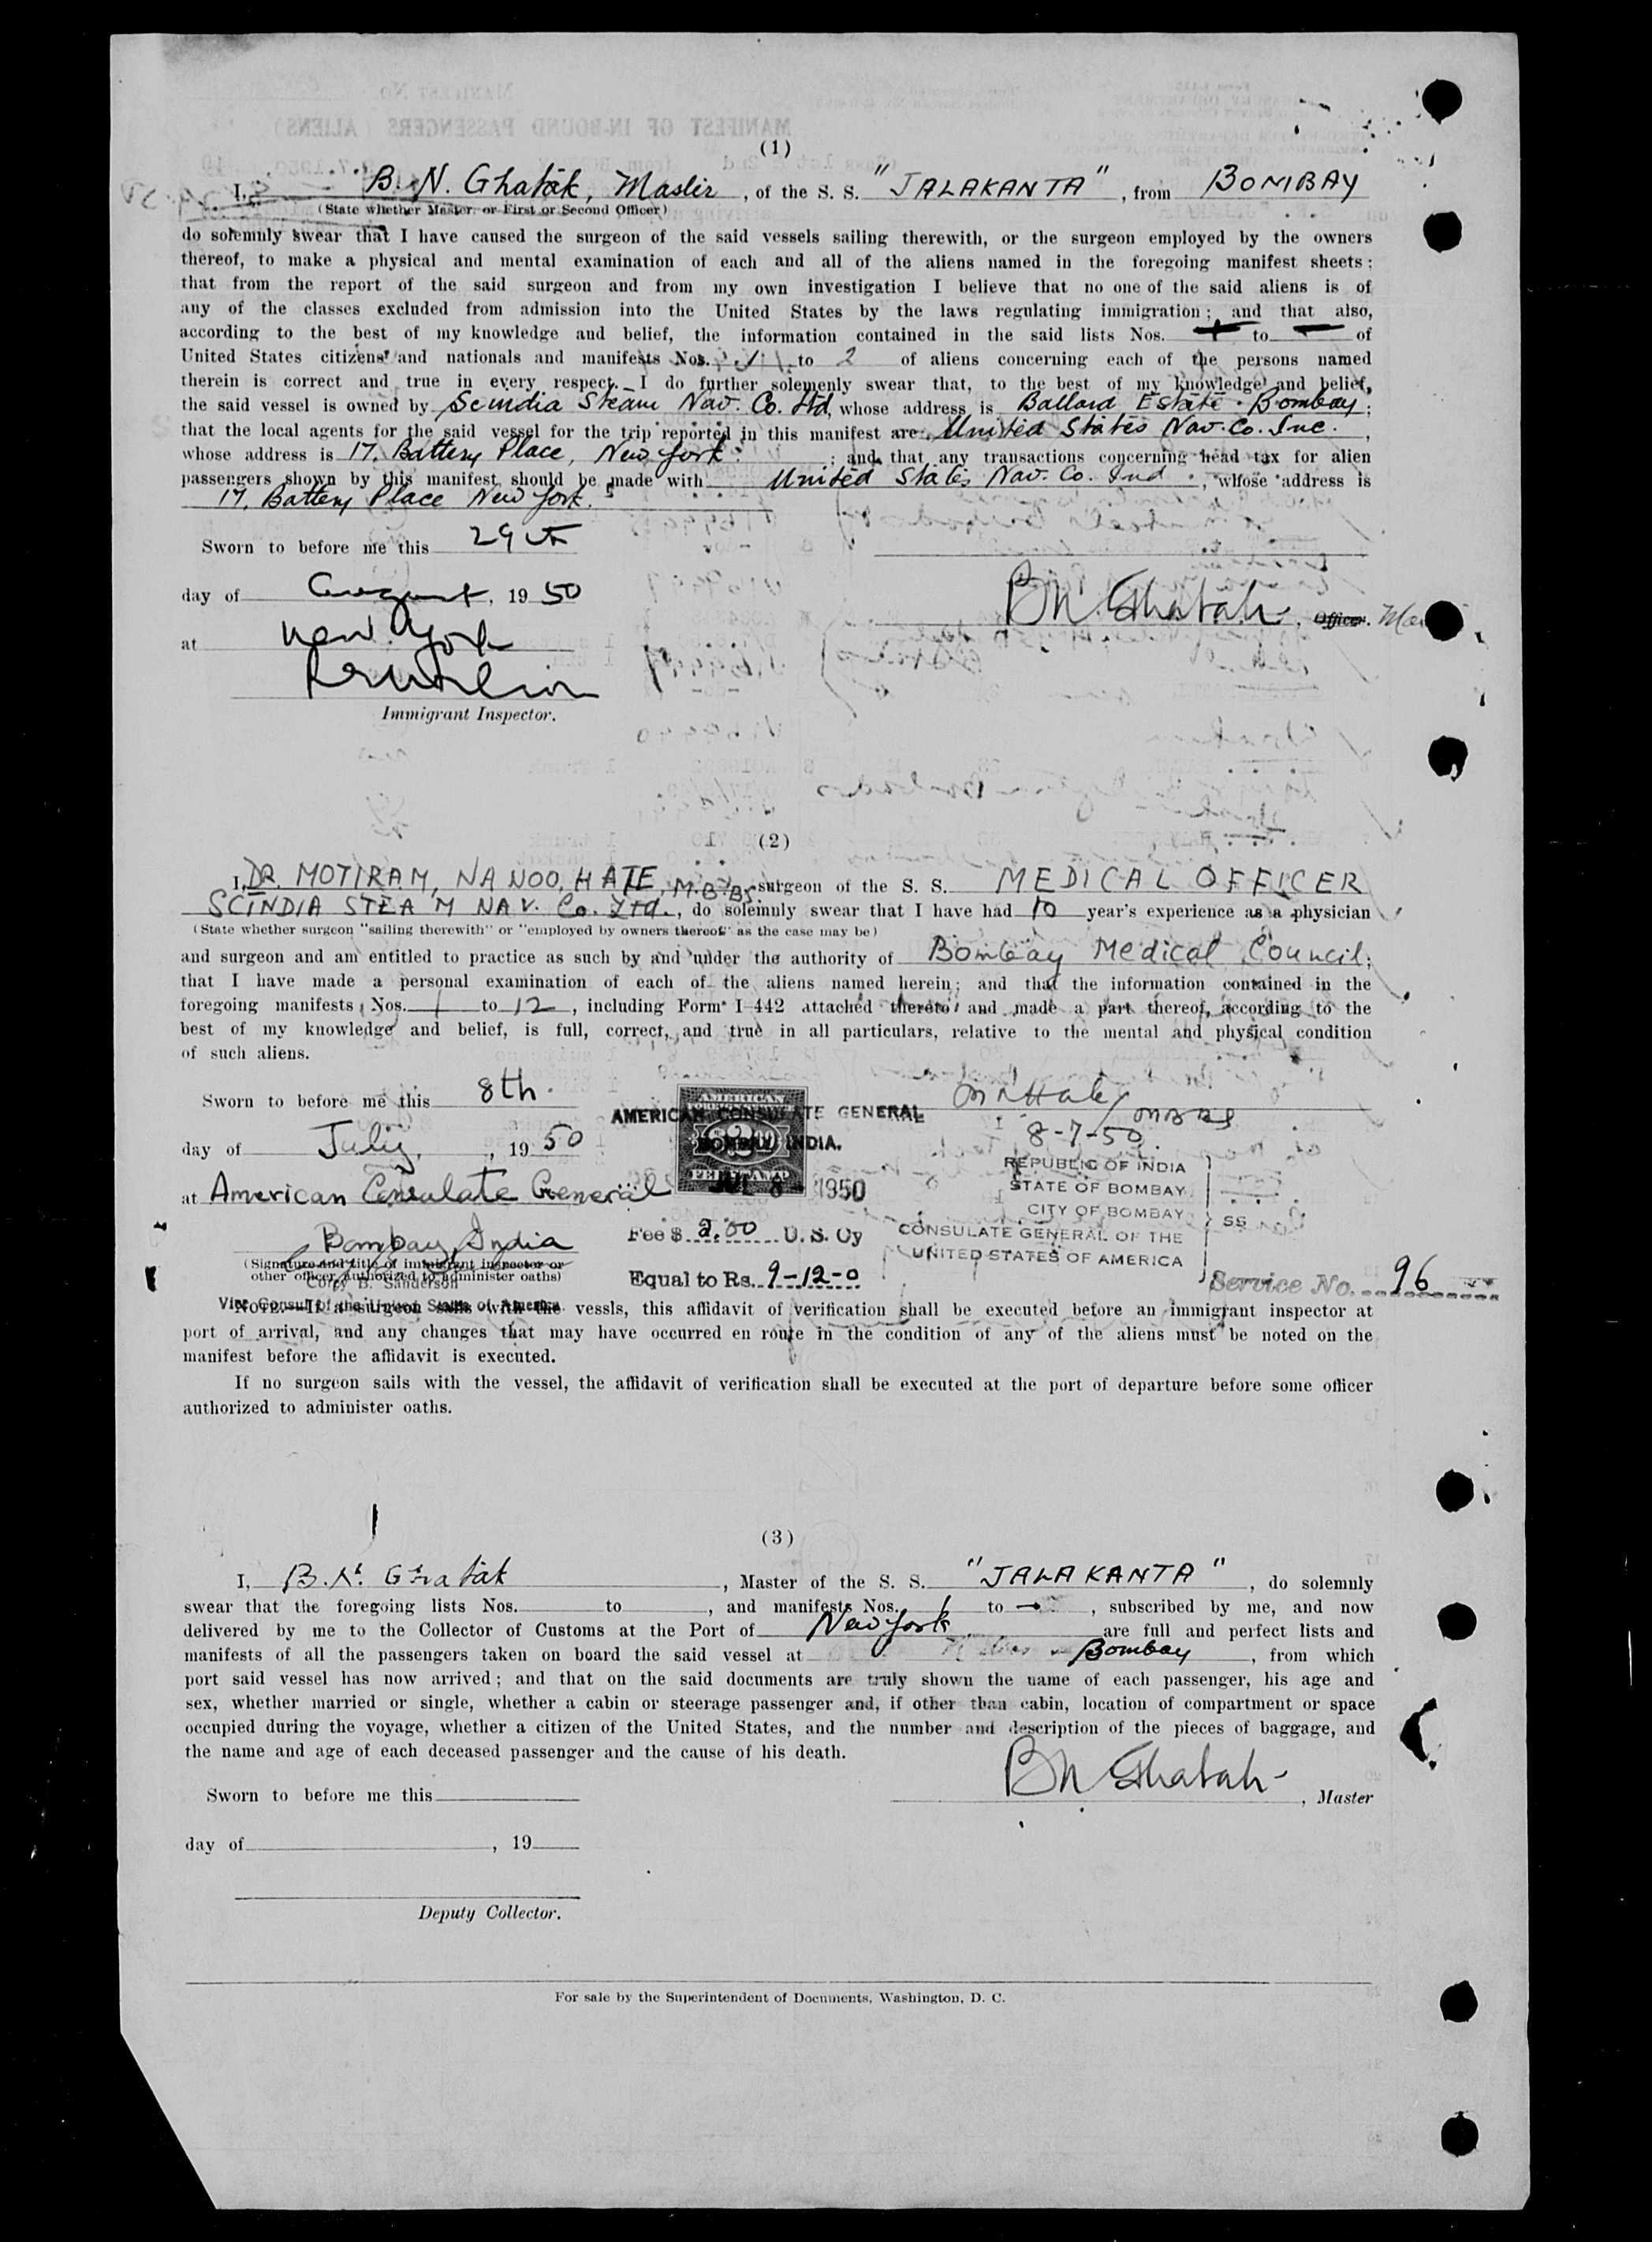 (1)
I, B. N. Ghatak, Master, of the S. S. "JALAKANTA", from BOMBAY
(State whether Master or First or Second Officer)
do solemnly swear that I have caused the surgeon of the said vessels sailing therewith, or the surgeon employed by the owners
thereof, to make a physical and mental examination of each and all of the aliens named in the foregoing manifest sheets;
that from the report of the said surgeon and from my own investigation I believe that no one of the said aliens is of
any of the classes excluded from admission into the United States by the laws regulating immigration; and that also,
according to the best of my knowledge and belief, the information contained in the said lists Nos. to of
United States citizens and nationals and manifests Nos. 1 to 2 of aliens concerning each of the persons named
therein is correct and true in every respect. I do further solemenly swear that, to the best of my knowledge and belief,
the said vessel is owned by Scindia Steam Nav. Co. Ltd, whose address is Ballard Estate. Bombay;
that the local agents for the said vessel for the trip reported in this manifest are United States Nav. Co. Inc.,
whose address is 17, Battery Place, New York; and that any transactions concerning head tax for alien
passengers shown by this manifest should be made with United States Nav. Co. Ind, whose address is
17, Battery Place New York.
Sworn to before me this 29th
day of August, 1950
BN. Ghatak, Officer.
at New York
Immigrant Inspector.
(2)
I, DR. MOTIRAM, NANOO, HATE, M.B.BS. surgeon of the S. S. MEDICAL OFFICER
SCINDIA STEAM NAV. Co. Ltd., do solemnly swear that I have had 10 year's experience as a physician
(State whether surgeon "sailing therewith" or "employed by owners thereof" as the case may be)
and surgeon and am entitled to practice as such by and under the authority of Bombay Medical Council;
that I have made a personal examination of each of the aliens named herein; and that the information contained in the
foregoing manifests Nos. 1 to 12, including Form I-442 attached thereto and made a part thereof, according to the
best of my knowledge and belief, is full, correct, and true in all particulars, relative to the mental and physical condition
of such aliens.
Sworn to before me this 8th.
AMERICAN CONSULATE GENERAL
BOMBAY, INDIA.
M N Hate MBBS
8-7-50.
day of July, 1950
at American Consulate General
JUL 8 1950
Bombay, India
Fee $ 2.00 U. S. Cy
Equal to Rs. 9-12-0
REPUBLIC OF INDIA
STATE OF BOMBAY
CITY OF BOMBAY
CONSULATE GENERAL OF THE
UNITED STATES OF AMERICA
SS
Service No. 96
(Signature and title of immigrant inspector or
other officer authorized to administer oaths)
Corey B. Sanderson
Vice Consul of the United States of America.
NOTE.—If a surgeon sails with the vessls, this affidavit of verification shall be executed before an immigrant inspector at
port of arrival, and any changes that may have occurred en route in the condition of any of the aliens must be noted on the
manifest before the affidavit is executed.
If no surgeon sails with the vessel, the affidavit of verification shall be executed at the port of departure before some officer
authorized to administer oaths.
(3)
I, B. N. Ghatak, Master of the S. S. "JALAKANTA", do solemnly
swear that the foregoing lists Nos. to , and manifests Nos. 1 to , subscribed by me, and now
delivered by me to the Collector of Customs at the Port of New York are full and perfect lists and
manifests of all the passengers taken on board the said vessel at Bombay, from which
port said vessel has now arrived; and that on the said documents are truly shown the name of each passenger, his age and
sex, whether married or single, whether a cabin or steerage passenger and, if other than cabin, location of compartment or space
occupied during the voyage, whether a citizen of the United States, and the number and description of the pieces of baggage, and
the name and age of each deceased passenger and the cause of his death.
BN Ghatak, Master
Sworn to before me this
day of , 19
Deputy Collector.
For sale by the Superintendent of Documents, Washington, D. C.